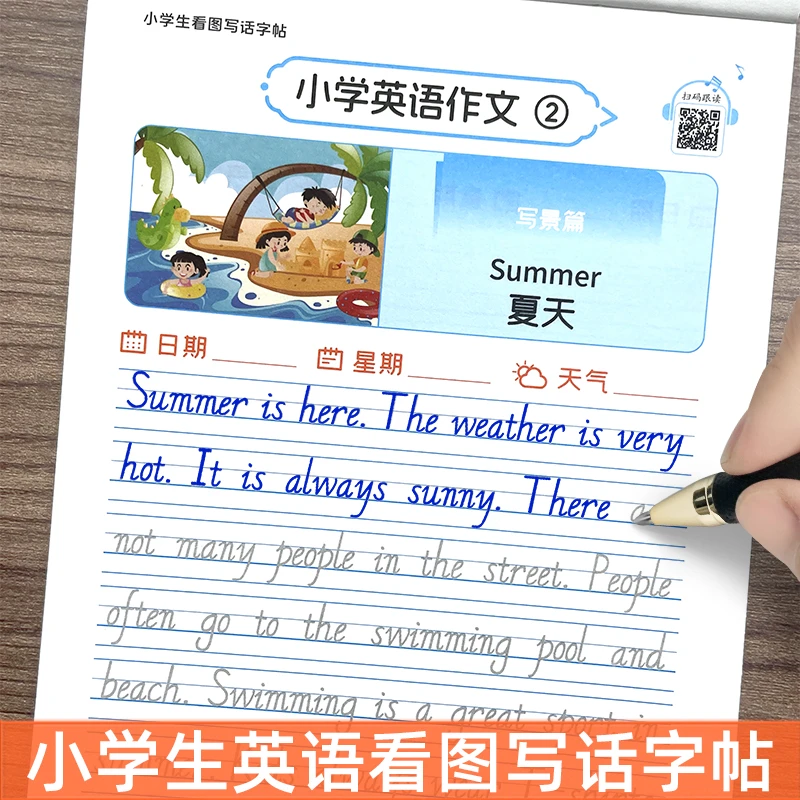 小学生看图写话字帖
小学英语作文 ②
扫码跟读
写景篇
Summer
夏天
日期 星期 天气
Summer is here. The weather is very
hot. It is always sunny. There
not many people in the street. People
often go to the swimming pool and
beach. Swimming is a great sport in
小学生英语看图写话字帖